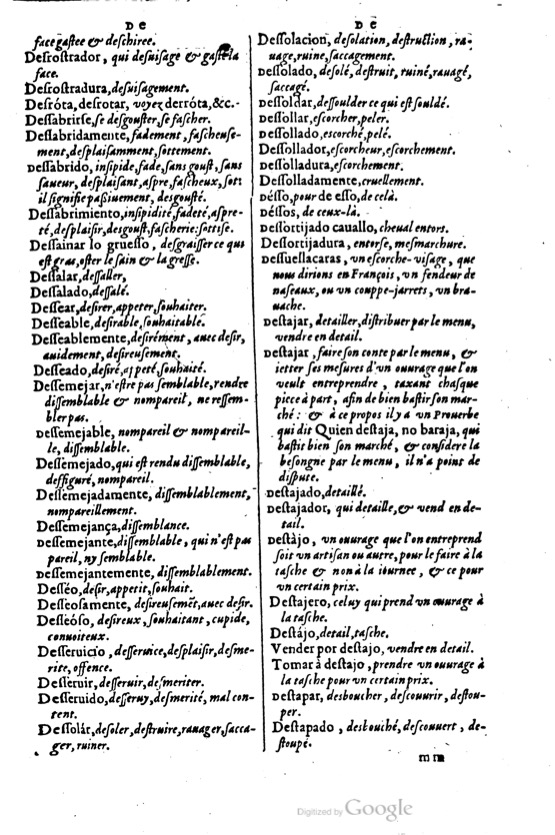 D E
face gastee & deschiree.
Desrostrador, qui desuisage & gaste la
face.
Desrostradura, desuisagement.
Desróta, desrotar, voyez derróta, &c.
Dessabrirse, se desgouster, se fascher.
Dessabridamente, fadement, fascheuse-
ment, desplaisamment, sottement.
Dessabrido, insipide, fade, sans goust, sans
saueur, desplaisant, aspre, fascheux, sot:
il signifie paßiuement, desgousté.
Dessabrimiento, insipidité, fadeté, aspre-
té, desplaisir, desgoust, fascherie: sottise.
Dessainar lo gruesso, desgraisser ce qui
est gras, oster le sain & la gresse.
Dessalar, dessaller,
Dessalado, dessalé.
Dessear, desirer, appeter, souhaiter.
Desseable, desirable, souhaitable.
Desseablemente, desirément, auec desir,
auidement, desireusement.
Desseado, desiré, appeté, souhaité.
Dessemejar, n'estre pas semblable, rendre
dissemblable & nompareil, ne ressem-
bler pas.
Dessemejable, nompareil & nompareil-
le, dissemblable.
Dessemejado, qui est rendu dissemblable,
desfiguré, nompareil.
Dessemejadamente, dissemblablement,
nompareillement.
Dessemejança, dissemblance.
Dessemejante, dissemblable, qui n'est pas
pareil, ny semblable.
Dessemejantemente, dissemblablement.
Desséo, desir, appetit, souhait.
Desseosamente, desireusemẽt, auec desir.
Desseóso, desireux, souhaitant, cupide,
conuoiteux.
Desseruicio, desseruice, desplaisir, desme-
rite, offence.
Desseruir, desseruir, desmeriter.
Desseruido, desseruy, desmerité, mal con-
tent.
Dessolár, desoler, destruire, rauager, sacca-
ger, ruiner.
D E
Dessolacion, desolation, destruction, ra-
uage, ruine, saccagement.
Dessolado, desolé, destruit, ruiné, rauagé,
saccagé.
Dessoldar, dessoulder ce qui est souldé.
Dessollar, escorcher, peler.
Dessollado, escorché, pelé.
Dessollador, escorcheur, escorchement.
Dessolladura, escorchement.
Dessolladamente, cruellement.
Désso, pour de esso, de celà.
Déssos, de ceux-là.
Dessortijado cauallo, cheual entors.
Dessortijadura, entorse, mesmarchure.
Dessuellacaras, vn escorche-visage, que
nous dirions en François, vn fendeur de
naseaux, ou vn couppe-jarrets, vn bra-
uache.
Destajar, detailler, distribuer par le menu,
vendre en detail.
Destajar, faire son conte par le menu, &
ietter ses mesures d'vn ouurage que l'on
veult entreprendre, taxant chasque
piece à part, afin de bien bastir son mar-
ché: & à ce propos il y a vn Prouerbe
qui dit Quien destaja, no baraja, qui
bastit bien son marché, & considere la
besongne par le menu, il n'a point de
dispute.
Destajado, detaillé.
Destajador, qui detaille, & vend en de-
tail.
Destàjo, vn ouurage que l'on entreprend
soit vn artisan ou autre, pour le faire à la
tasche & non à la iournee, & ce pour
vn certain prix.
Destajero, celuy qui prend vn ouurage à
la tasche.
Destájo, detail, tasche.
Vender por destajo, vendre en detail.
Tomar à destajo, prendre vn ouurage à
la tasche pour vn certain prix.
Destapar, desboucher, descouurir, destou-
per.
Destapado, desbouché, descouuert, de-
stoupé.
mm
Digitized by Google